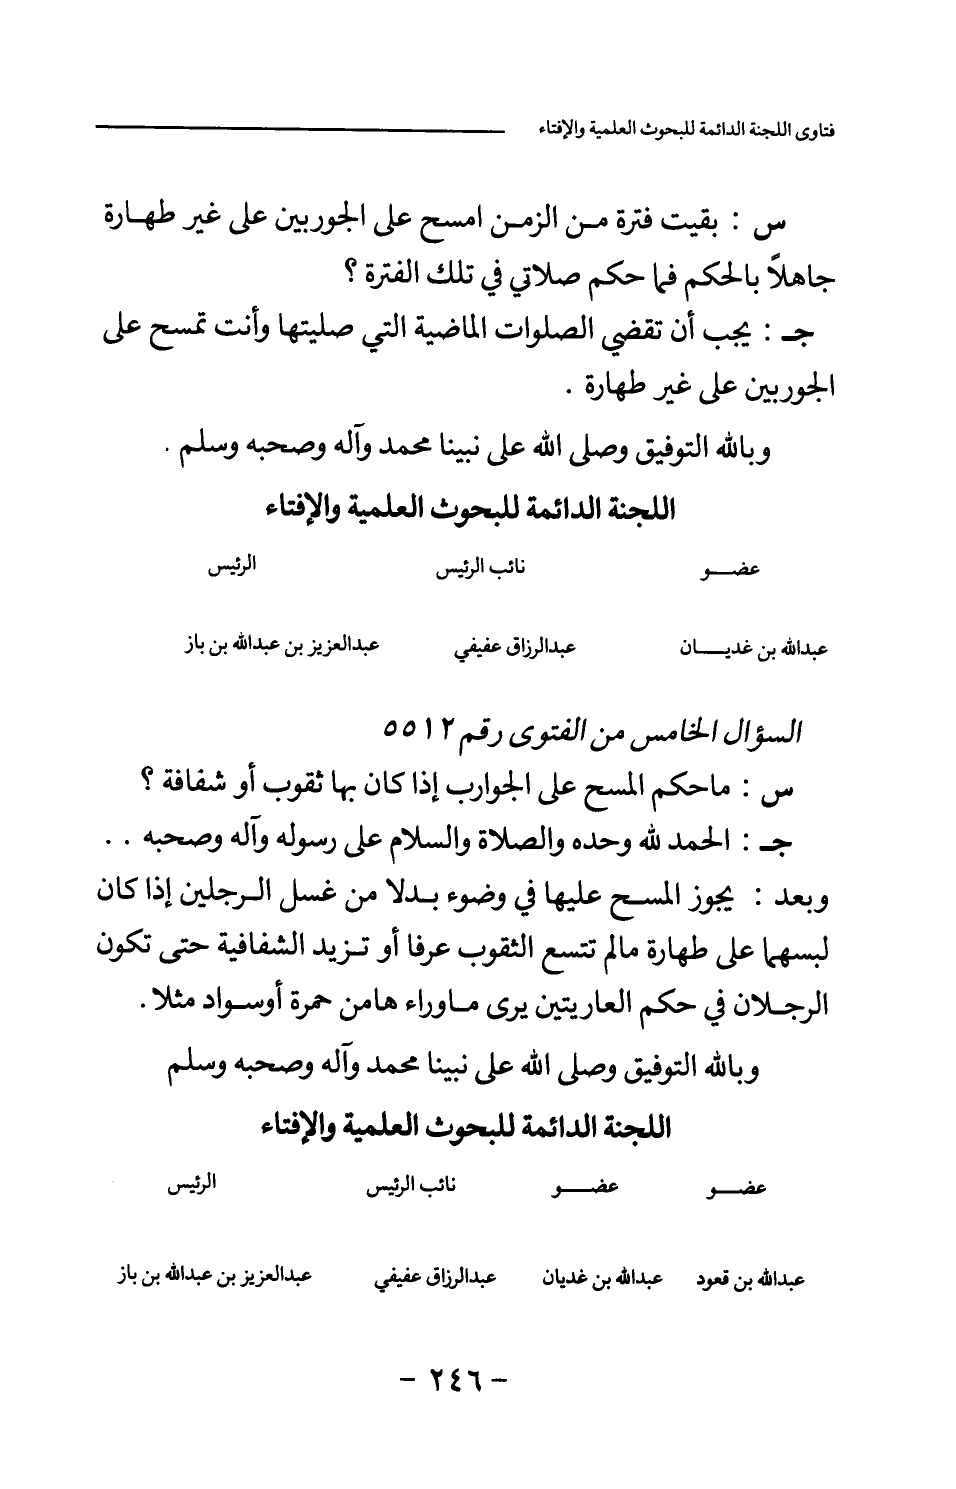 فتاوى اللجنة الدائمة للبحوث العلمية والإفتاء
س : بقيت فترة مـن الزمـن امسح على الجوربين على غير طهـارة
جاهلاً بالحكم فما حكم صلاتي في تلك الفترة ؟
جـ : يجب أن تقضي الصلوات الماضية التي صليتها وأنت تمسح على
الجوربين على غير طهارة .
وبالله التوفيق وصلى الله على نبينا محمد وآله وصحبه وسلم .
اللجنة الدائمة للبحوث العلمية والإفتاء
عضـــو نائب الرئيس الرئيس
عبدالله بن غديـــان عبدالرزاق عفيفي عبدالعزيز بن عبدالله بن باز
السؤال الخامس من الفتوى رقم ٥٥١٢
س : ماحكم المسح على الجوارب إذا كان بها ثقوب أو شفافة ؟
جـ : الحمد لله وحده والصلاة والسلام على رسوله وآله وصحبه . .
وبعد : يجوز المسـح عليها في وضوء بـدلا من غسل الـرجلين إذا كان
لبسهما على طهارة مالم تتسع الثقوب عرفا أو تـزيد الشفافية حتى تكون
الرجـلان في حكم العاريتين يرى مـاوراء هامن حمرة أوسـواد مثلا .
وبالله التوفيق وصلى الله على نبينا محمد وآله وصحبه وسلم
اللجنة الدائمة للبحوث العلمية والإفتاء
عضـــو عضـــو نائب الرئيس الرئيس
عبدالله بن قعود عبدالله بن غديان عبدالرزاق عفيفي عبدالعزيز بن عبدالله بن باز
- ٢٤٦ -